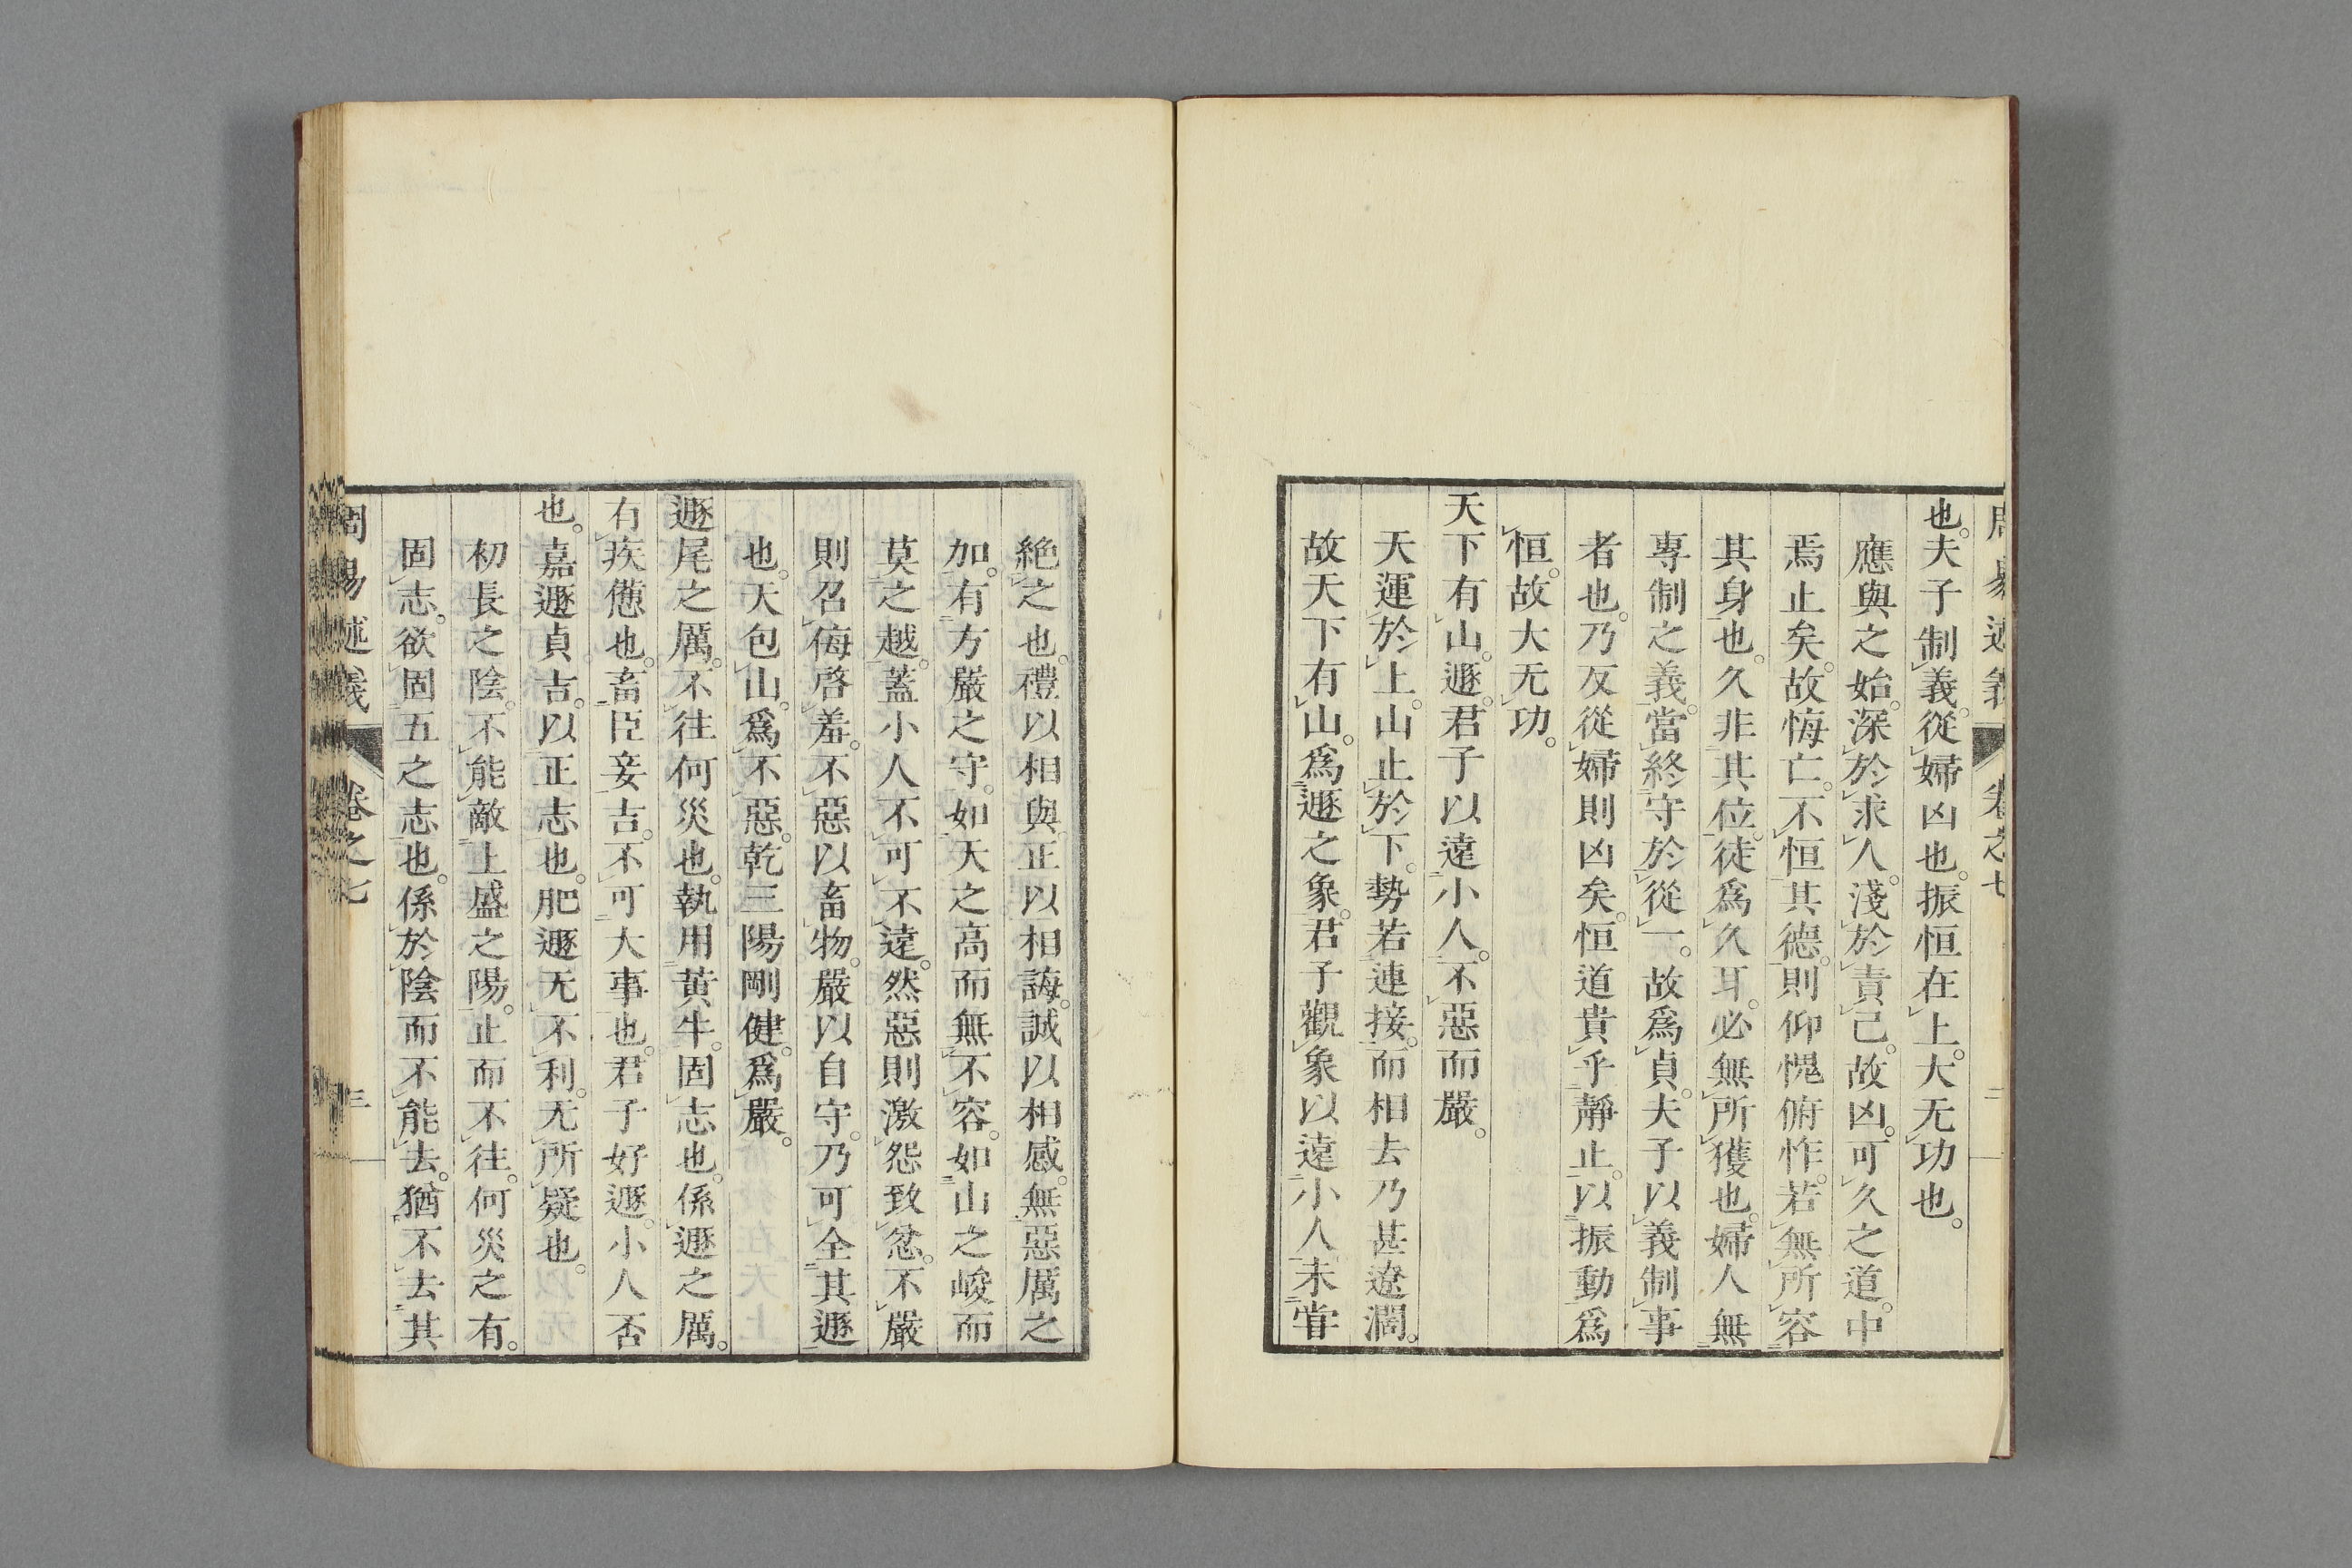 周易述義 卷之七 二
也。夫子制義。從婦凶也。振恒在上。大无功也。
應與之始。深於求人。淺於責己。故凶。可久之道。中
焉止矣。故悔亡。不恒其德。則仰愧俯怍。若無所容
其身也。久非其位。徒爲久耳。必無所獲也。婦人無
專制之義。當終守於從一。故爲貞。夫子以義制事
者也。乃反從婦則凶矣。恒道貴乎靜止。以振動爲
恒。故大无功。
天下有山。遯。君子以遠小人。不惡而嚴。
天運於上。山止於下。勢若連接。而相去乃甚遼濶。
故天下有山。爲遯之象。君子觀象以遠小人。未甞
絕之也。禮以相與。正以相誨。誠以相感。無惡厲之
加。有方嚴之守。如天之高而無不容。如山之峻而
莫之越。蓋小人不可不遠。然惡則激怨致忿。不嚴
則召侮啓羞。不惡以畜物。嚴以自守。乃可全其遯
也。天包山。爲不惡。乾三陽剛健。爲嚴。
遯尾之厲。不往何災也。執用黃牛。固志也。係遯之厲。
有疾憊也。畜臣妾吉。不可大事也。君子好遯。小人否
也。嘉遯貞吉。以正志也。肥遯无不利。无所疑也。
初長之陰。不能敵上盛之陽。止而不往。何災之有。
固志。欲固五之志也。係於陰而不能去。猶不去其
周易述義 卷之七 三